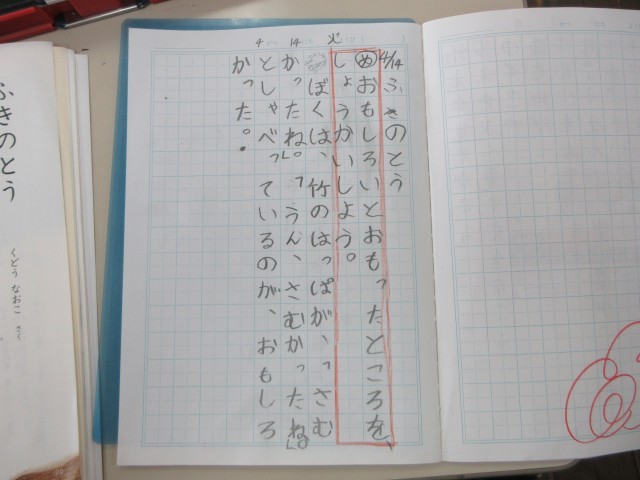 4 14 火
4/14 ふきのとう
め おもしろいとおもったところを、
しょうかいしよう。
ぼくは、竹のはっぱが、「さむ
かったね。」「うん、さむかったね。」
としゃべっているのが、おもしろ
かった。
ふきのとう
くどう なおこ さく